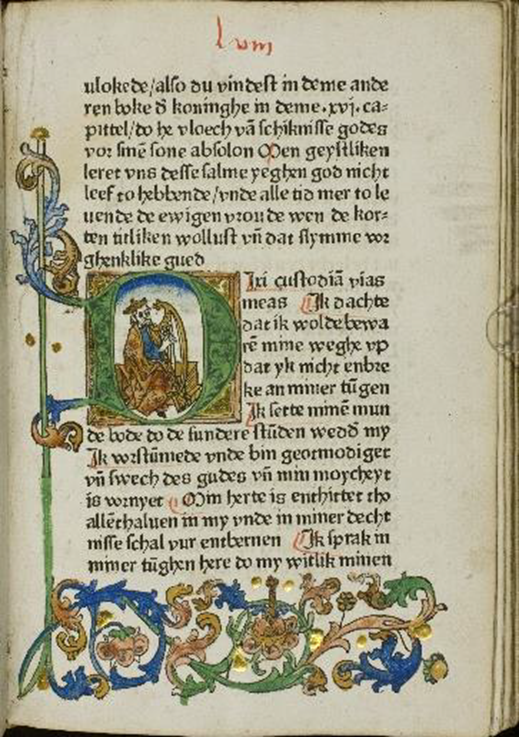 lviij
vlokede/also du vindest in deme ande
ren boke d̄ koninghe in deme .xvj. ca⸗
pittel/do he vloech vā schiknisse godes
vor sinē sone absolon Men geystliken
leret vns desse salme yeghen god nicht
leef to hebbende/vnde alle tid mer to le
uende de ewigen vroude wen de kor⸗
ten titliken wollust vn̄ dat slymme vor
ghenklike gued
Dixi custodiā vias
meas Ik dachte
dat ik wolde bewa
rē mine weghe vp
dat yk nicht enbre
ke an miner tūgen
Ik sette minē mun
de bode do de sundere stūden wedd̄ my
Ik vorstūmede vnde bin geotmodiget
vn̄ swech des gudes vn̄ min moycheyt
is vornyet Min herte is enthittet tho
allēthaluen in my vnde in miner decht
nisse schal vur entbernen Ik sprak in
miner tūghen here do my witlik minen